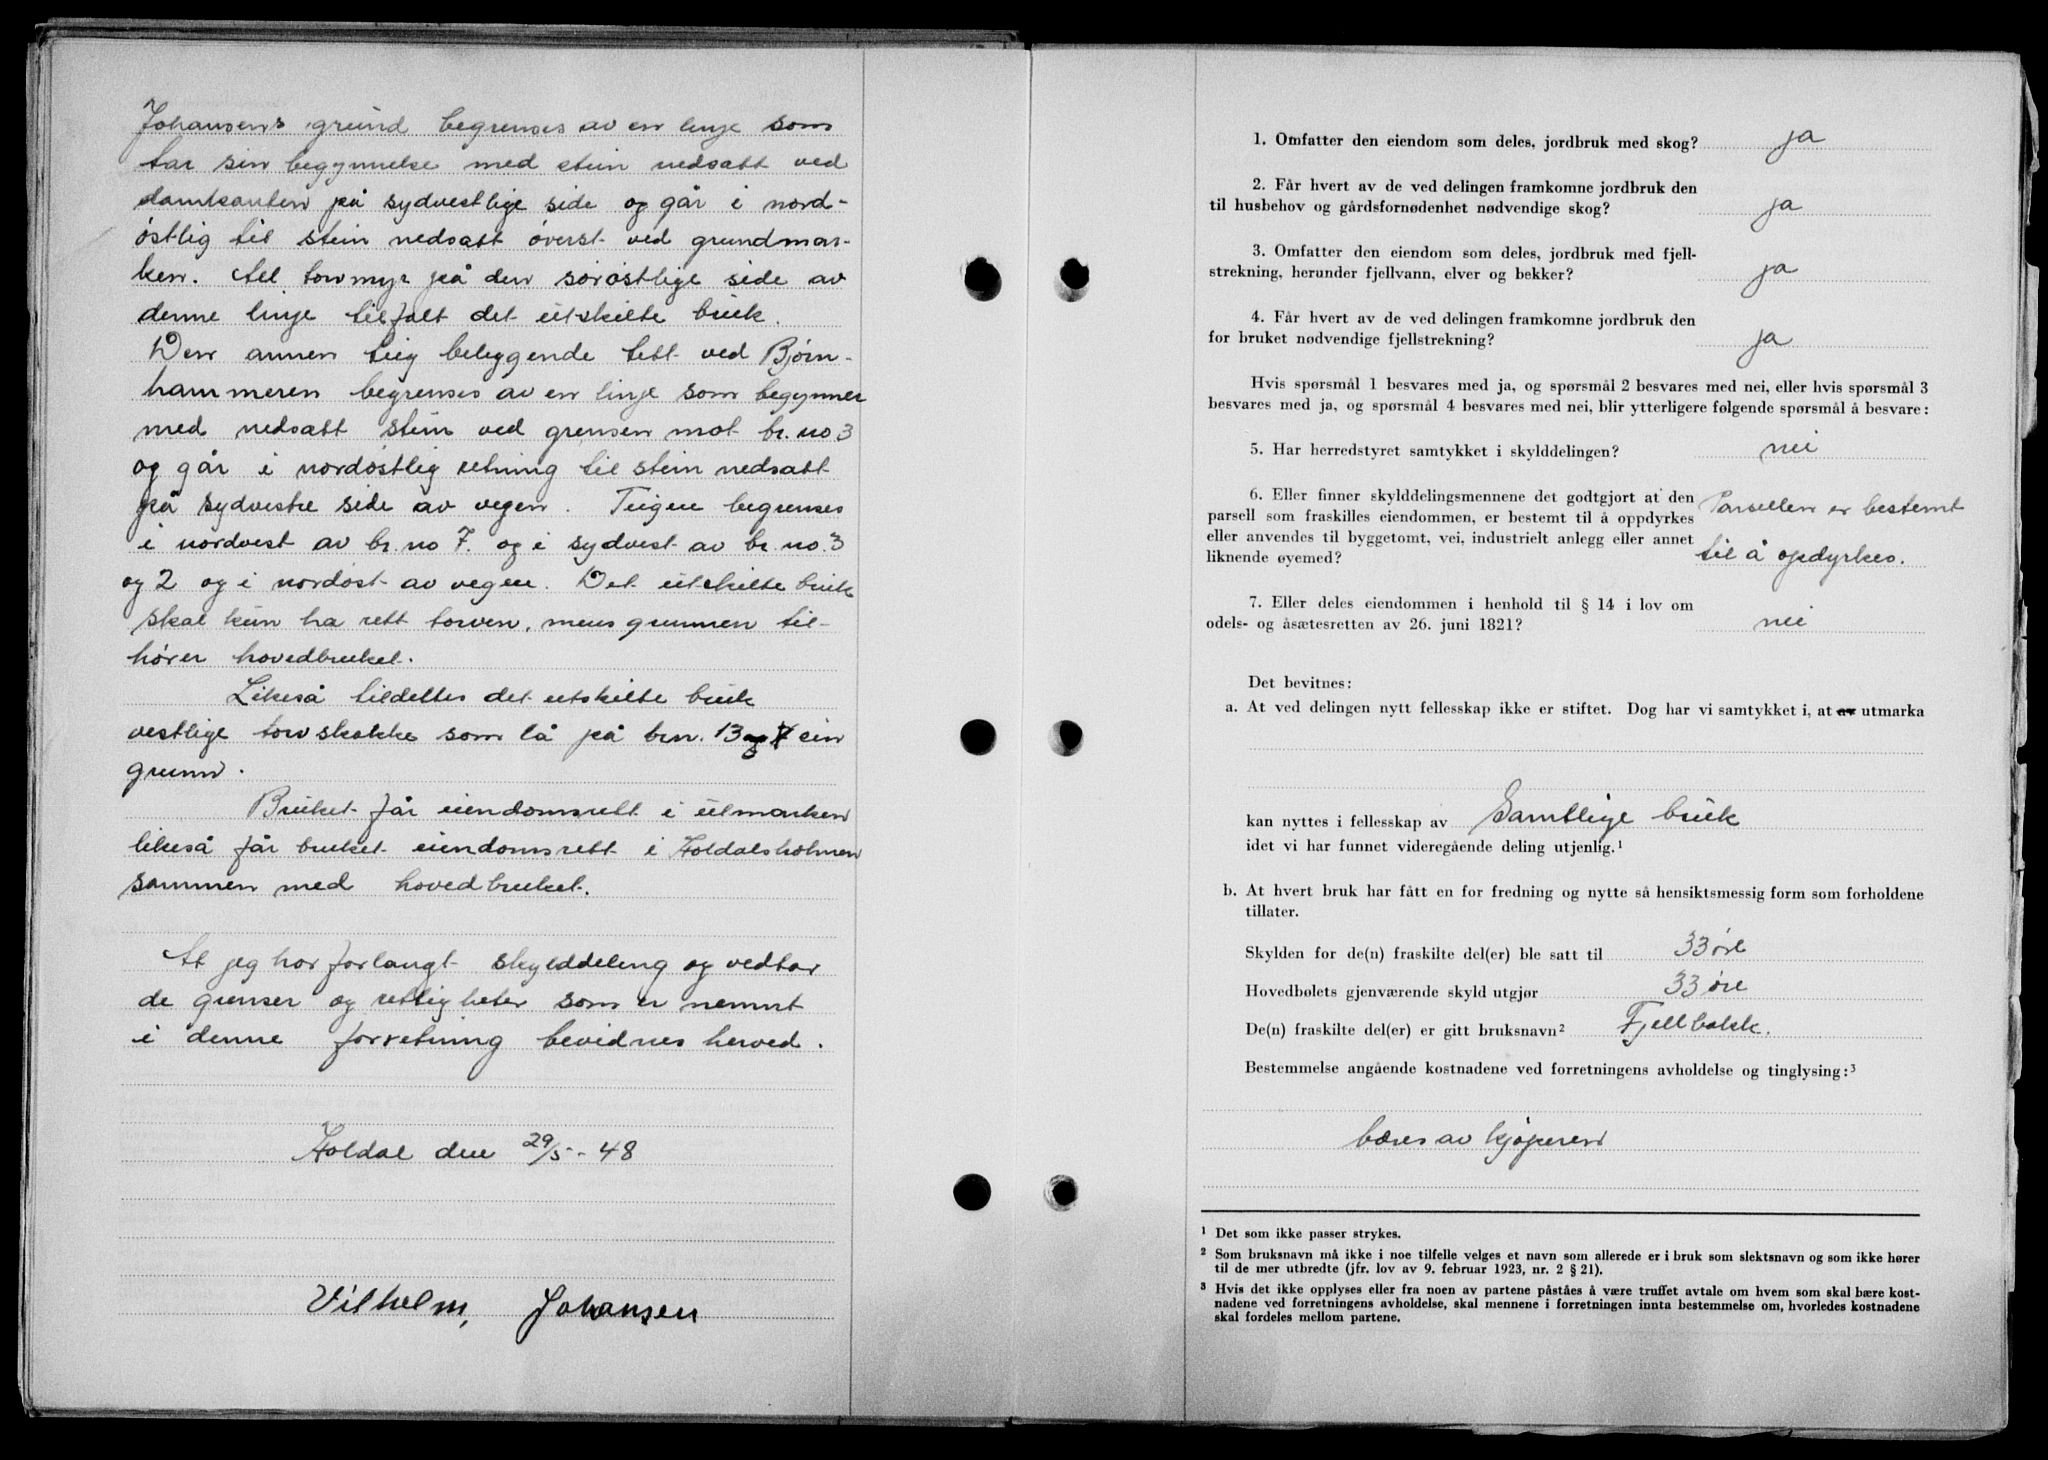 Johansens grund begrenses av en linje som
tar sin begynnelse med stein nedsatt ved
damkanten på sydvestlige side og går i nord-
østlig til stein nedsatt øverst ved grundmar-
ken. til torvmyr på den sørøstlige side av
denne linje tilfalt det utskilte bruk.
Den annen teig beliggende tett ved Bjørn-
hammeren begrenses av en linje som begynner
med nedsatt stein ved grensen mot br. no 3
og går i nordøstlig retning til stein nedsatt
på sydvestre side av vegen. Teigen begrenses
i nordvest av br. no 7. og i sydvest av br. no. 3
og 2 og i nordøst av vegen. Det utskilte bruk
skal kun ha rett torven, mens grunnen til-
hører hovedbruket.
Likeså tildeltes det utskilte bruk
vestlige torvstakke som lå på brn. 13 og 7 sin
grunn.
Bruket får eiendomsrett i utmarken
likeså får bruket eiendomsrett i Holdalsholmen
sammen med hovedbruket.
At jeg har forlangt skylddeling og vedtar
de grenser og rettigheter som er nemnt
i denne forretning bevidnes herved.
Holdal den 29/5-48
Vilhelm, Johansen
1. Omfatter den eiendom som deles, jordbruk med skog? ja
2. Får hvert av de ved delingen framkomne jordbruk den
til husbehov og gårdsfornødenhet nødvendige skog? ja
3. Omfatter den eiendom som deles, jordbruk med fjell-
strekning, herunder fjellvann, elver og bekker? ja
4. Får hvert av de ved delingen framkomne jordbruk den
for bruket nødvendige fjellstrekning? ja
Hvis spørsmål 1 besvares med ja, og spørsmål 2 besvares med nei, eller hvis spørsmål 3
besvares med ja, og spørsmål 4 besvares med nei, blir ytterligere følgende spørsmål å besvare:
5. Har herredstyret samtykket i skylddelingen? nei
6. Eller finner skylddelingsmennene det godtgjort at den
parsell som fraskilles eiendommen, er bestemt til å oppdyrkes Parsellen er bestemt
eller anvendes til byggetomt, vei, industrielt anlegg eller annet
liknende øyemed? til å opdyrkes.
7. Eller deles eiendommen i henhold til § 14 i lov om
odels- og åsætesretten av 26. juni 1821? nei
Det bevitnes:
a. At ved delingen nytt fellesskap ikke er stiftet. Dog har vi samtykket i, at av utmarka
kan nyttes i fellesskap av Samtlige bruk
idet vi har funnet videregående deling utjenlig.¹
b. At hvert bruk har fått en for fredning og nytte så hensiktsmessig form som forholdene
tillater.
Skylden for de(n) fraskilte del(er) ble satt til 33 øre
Hovedbølets gjenværende skyld utgjør 33 øre
De(n) fraskilte del(er) er gitt bruksnavn² Fjellbakk.
Bestemmelse angående kostnadene ved forretningens avholdelse og tinglysing:³
bæres av kjøperen
¹ Det som ikke passer strykes.
² Som bruksnavn må ikke i noe tilfelle velges et navn som allerede er i bruk som slektsnavn og som ikke hører
til de mer utbredte (jfr. lov av 9. februar 1923, nr. 2 § 21).
³ Hvis det ikke opplyses eller fra noen av partene påståes å være truffet avtale om hvem som skal bære kost-
nadene ved forretningens avholdelse, skal mennene i forretningen innta bestemmelse om, hvorledes kostnadene
skal fordeles mellom partene.